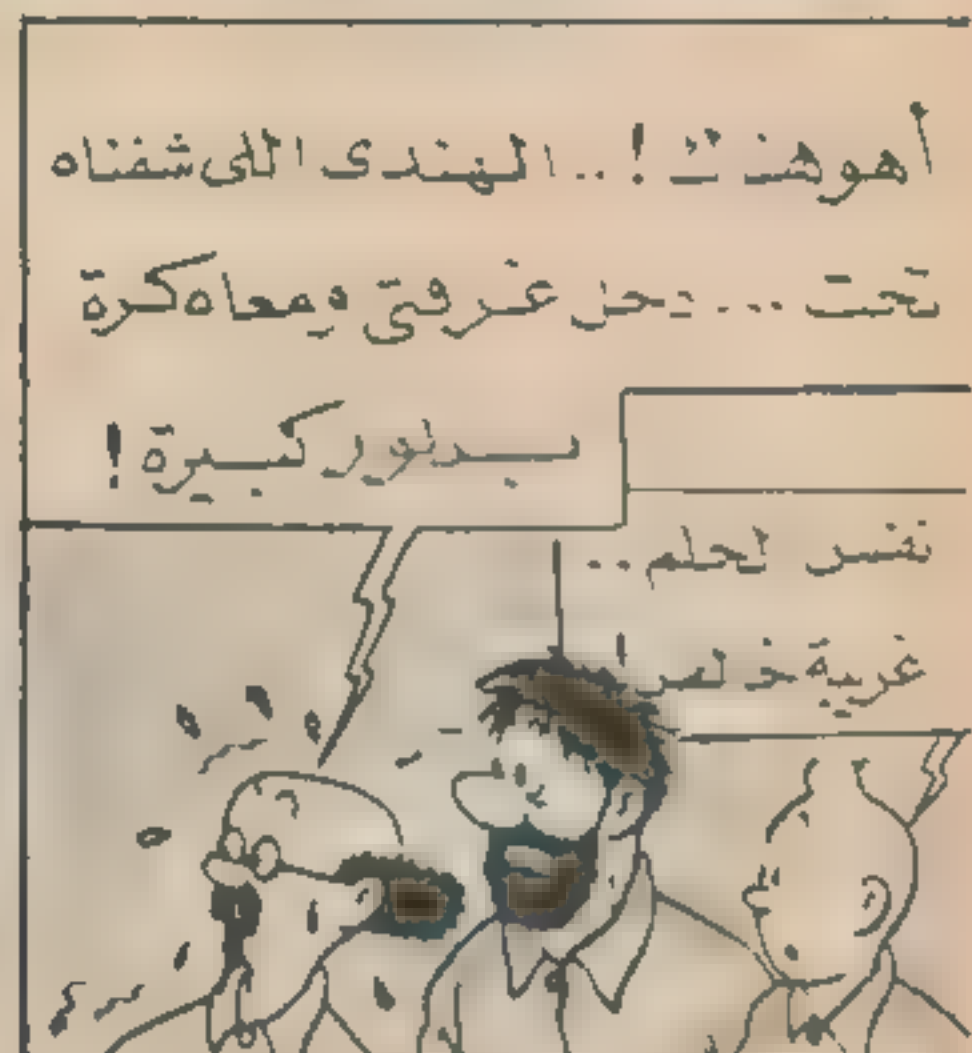 أهو هنا !.. الهندى اللى شفناه
تحت ... دخل غرفتى ومعاه كرة
بللور كبيرة !
نفس الحلم ..
غريبة خالص !